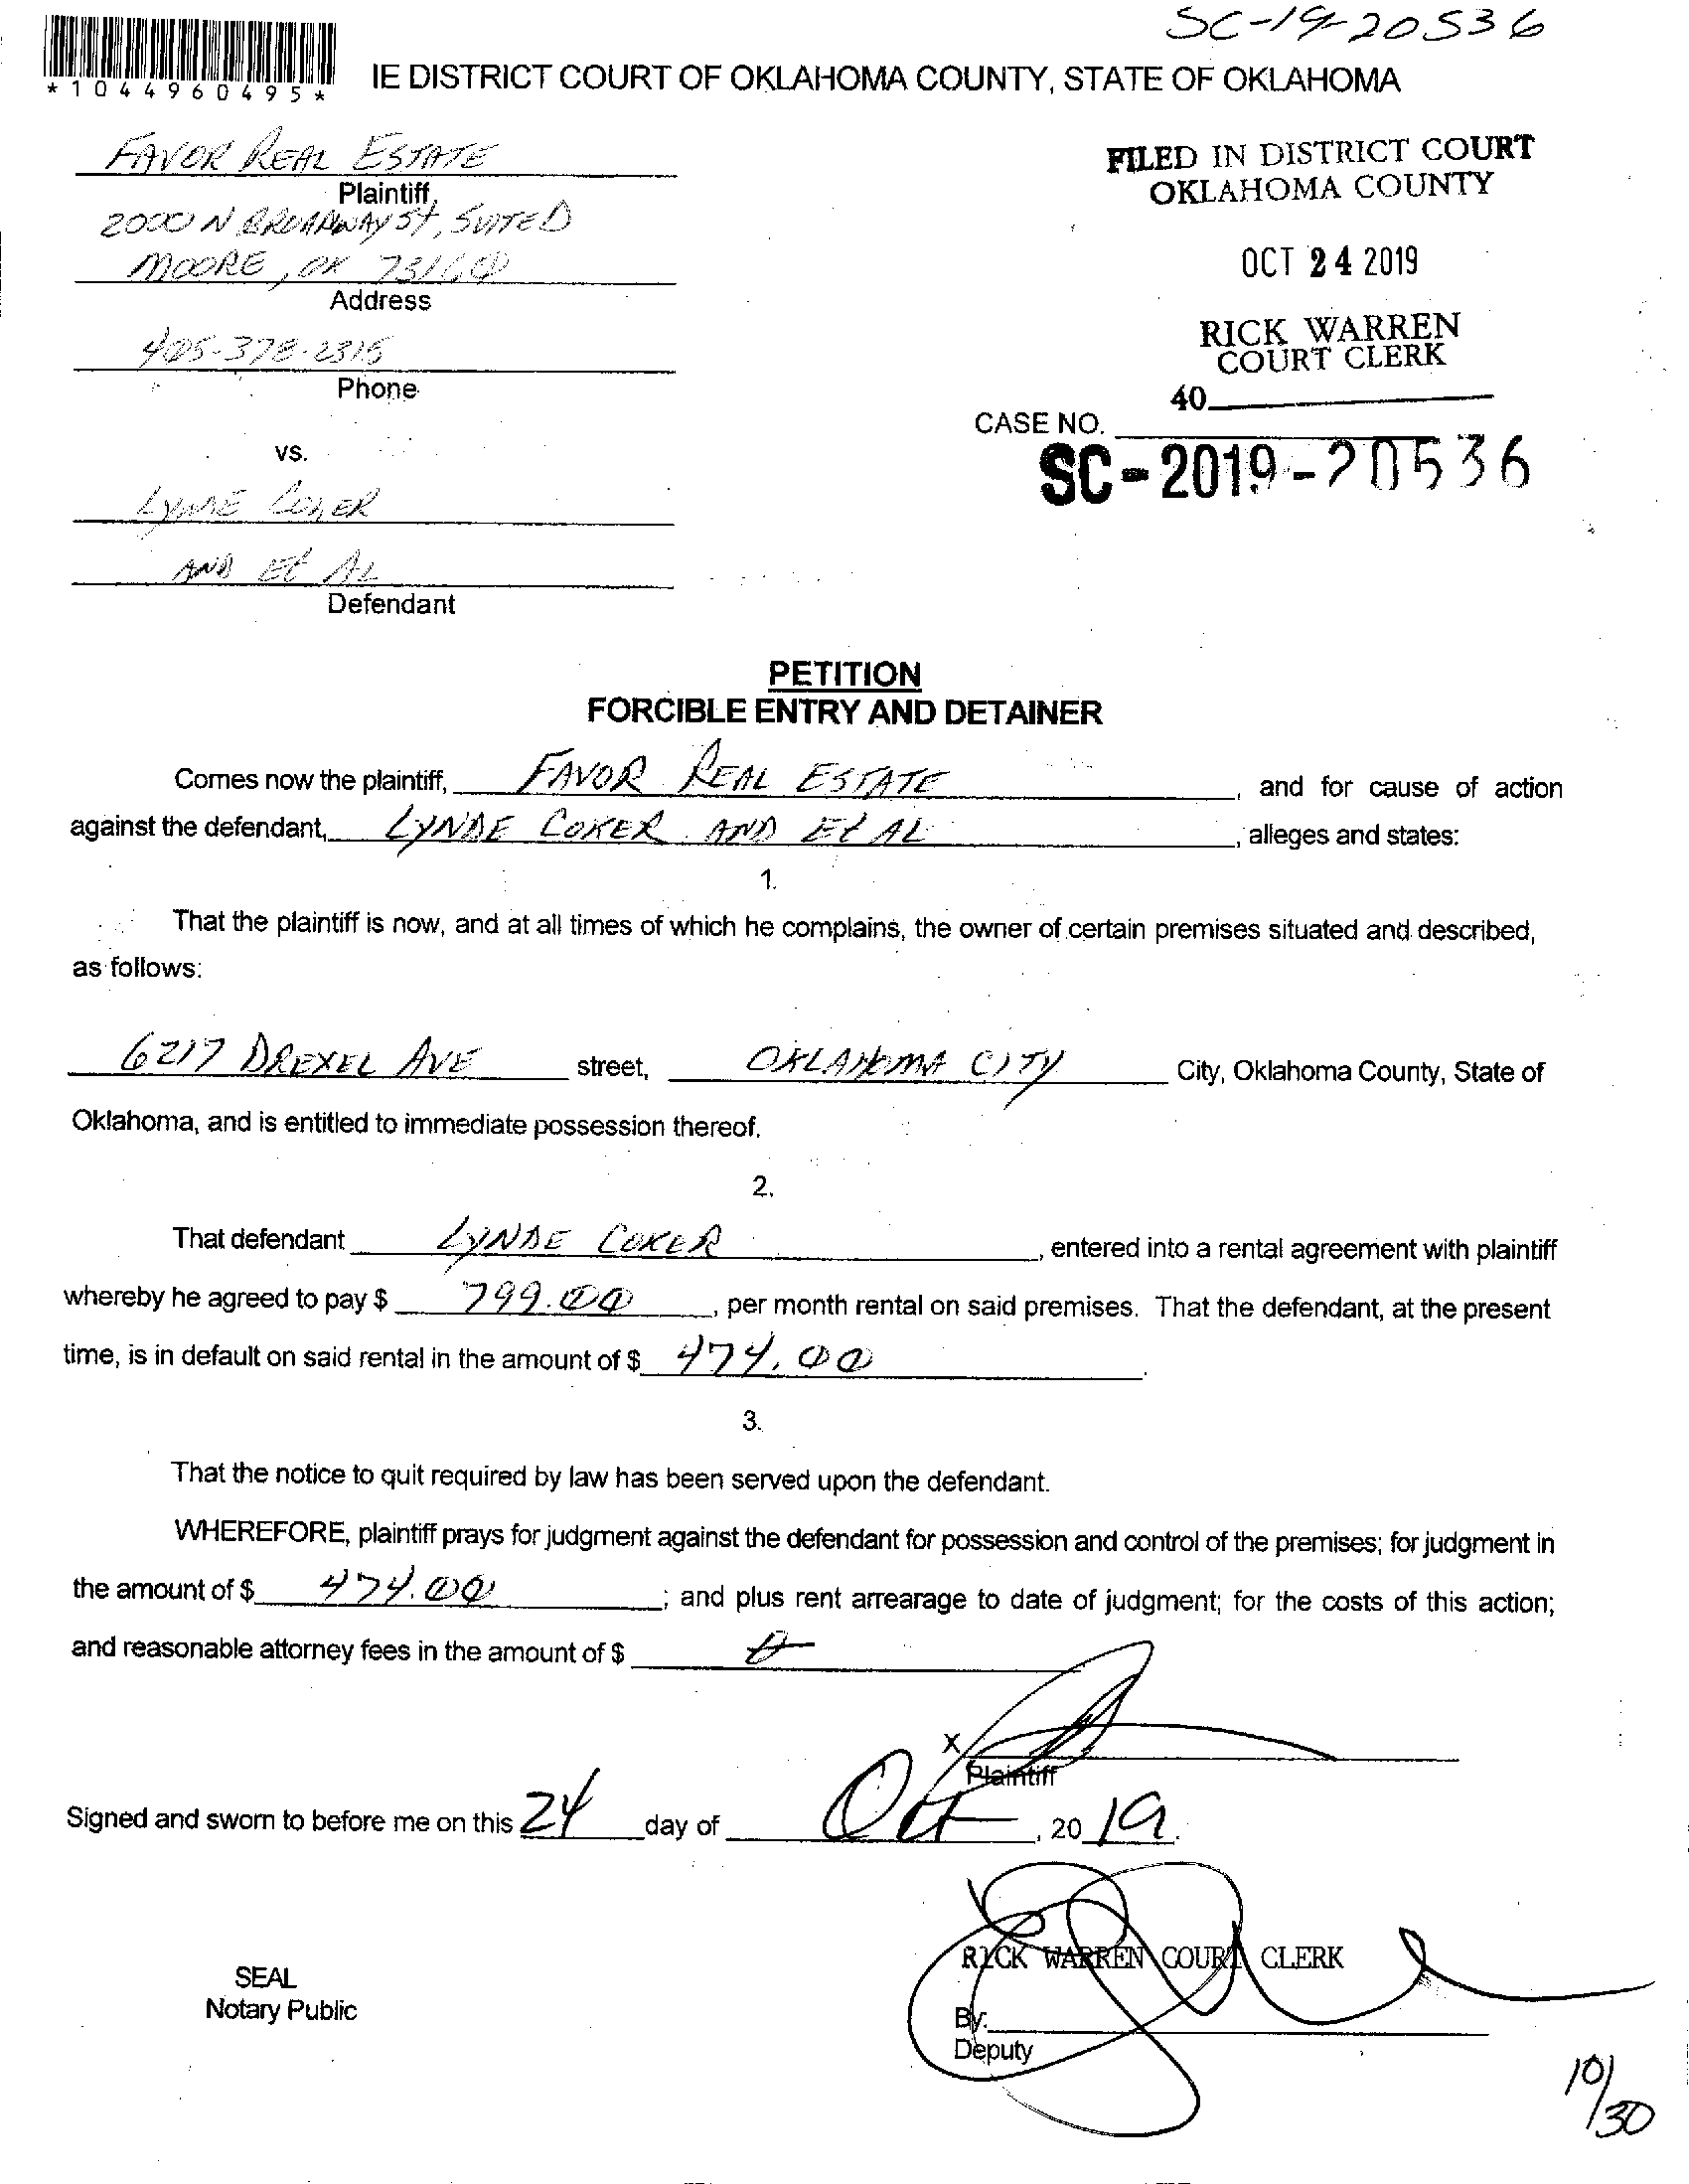 SC-19-20536
*1044960495*
IE DISTRICT COURT OF OKLAHOMA COUNTY, STATE OF OKLAHOMA
FAVOR REAL ESTATE
Plaintiff,
2000 N BROADWAY St, SUITE D
MOORE, OK 73160
Address
405-378-2315
Phone
FILED IN DISTRICT COURT
OKLAHOMA COUNTY
OCT 24 2019
RICK WARREN
COURT CLERK
40
CASE NO.
SC-2019-20536
vs.
LYNDE COKER
AND Et AL
Defendant
PETITION
FORCIBLE ENTRY AND DETAINER
Comes now the plaintiff, FAVOR REAL ESTATE, and for cause of action
against the defendant, LYNDE COKER AND Et AL, alleges and states:
1.
That the plaintiff is now, and at all times of which he complains, the owner of certain premises situated and described,
as follows:
6217 DREXEL AVE street, OKLAHOMA CITY City, Oklahoma County, State of
Oklahoma, and is entitled to immediate possession thereof.
2.
That defendant LYNDE COKER, entered into a rental agreement with plaintiff
whereby he agreed to pay $ 799.00, per month rental on said premises. That the defendant, at the present
time, is in default on said rental in the amount of $ 474.00.
3.
That the notice to quit required by law has been served upon the defendant.
WHEREFORE, plaintiff prays for judgment against the defendant for possession and control of the premises; for judgment in
the amount of $ 474.00; and plus rent arrearage to date of judgment; for the costs of this action;
and reasonable attorney fees in the amount of $
X
Plaintiff
Signed and sworn to before me on this 24 day of Oct, 20 19.
RICK WARREN COURT CLERK
SEAL
Notary Public
By:
Deputy
10/30